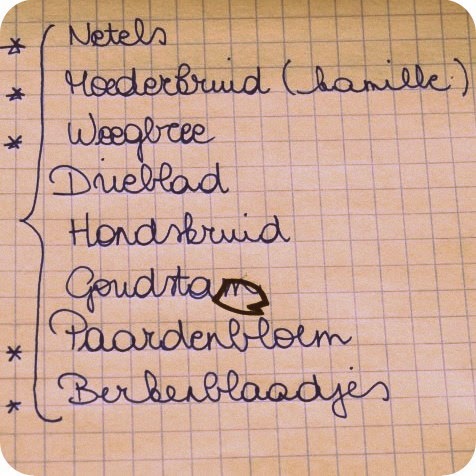 * Netels
* Moederkruid (kamille)
* Weegbree
Drieblad
Hondskruid
* Paardenbloem
* Berkenblaadjes